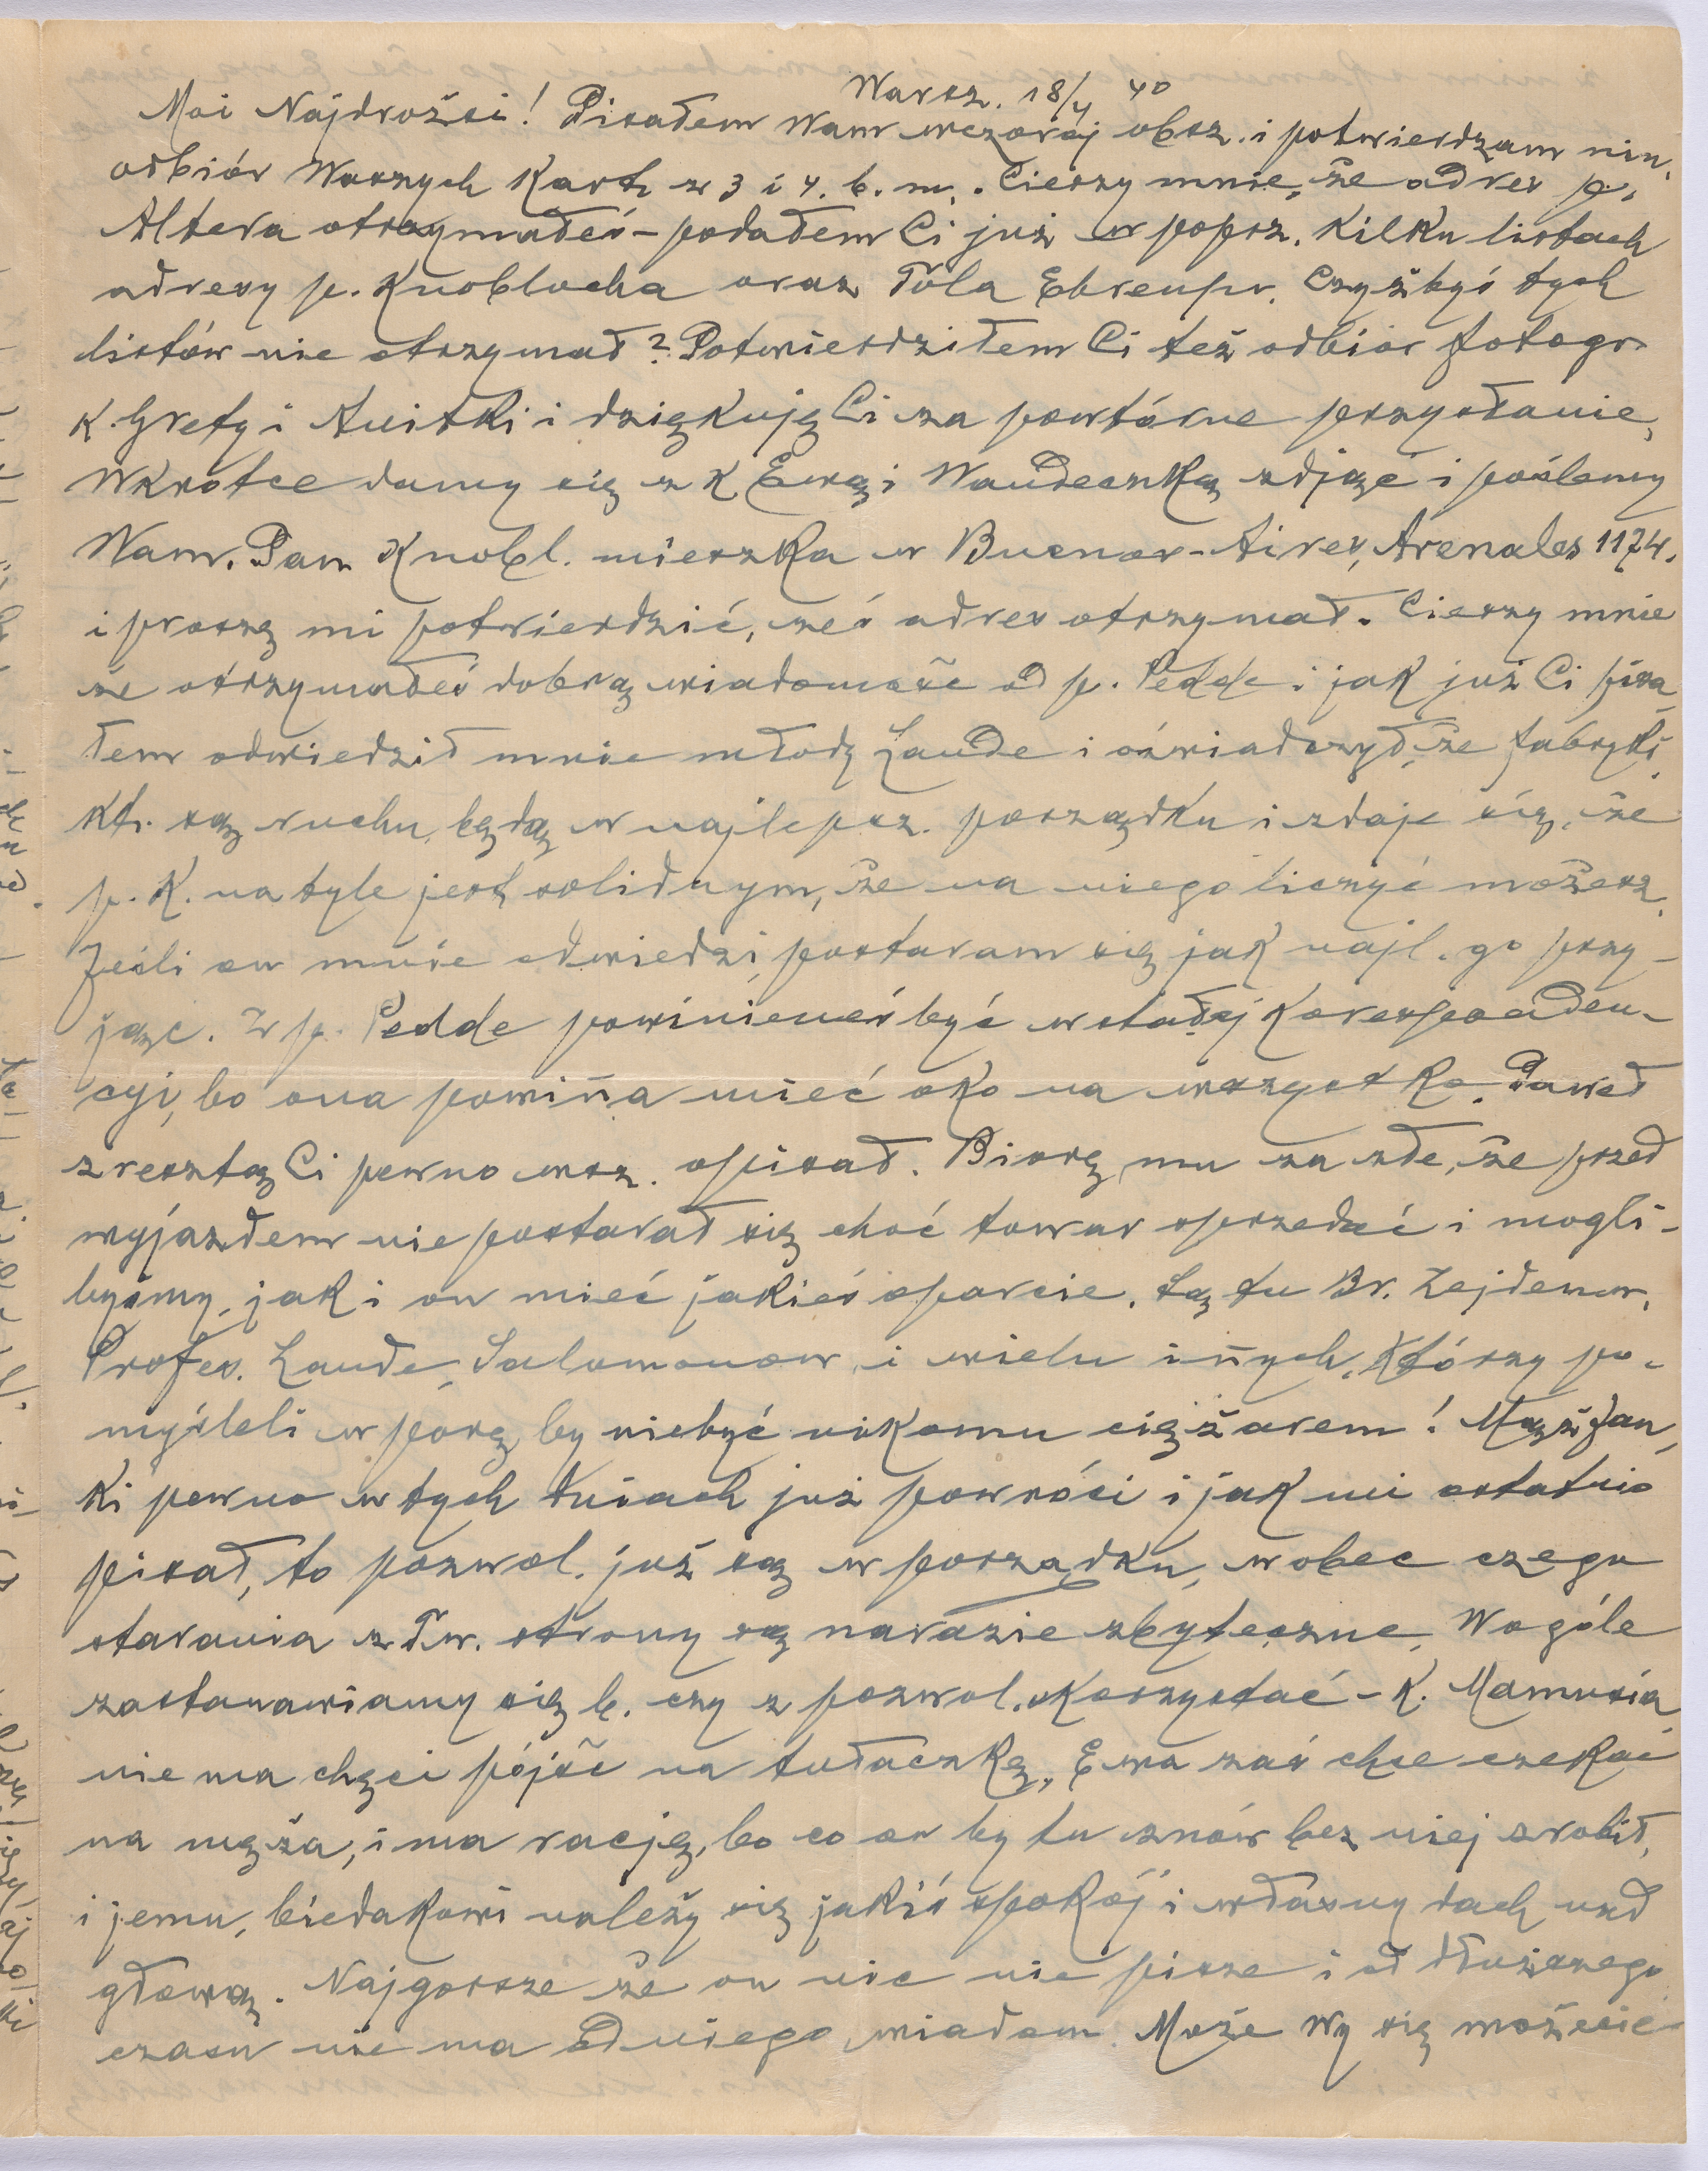 Warsz. 18/4 40
Moi Najdrożsi! Pisałem Wam wczoraj obsz. i potwierdzam nin.
odbiór Waszych Kart z 3 i 4. b. m. Cieszy mnie, że adres p.
Altera otrzymałeś – podałem Ci już w poprz. kilku listach
adresy p. Knoblocha oraz Tola Ehrenpr. Czyżbyś tych
listów nie otrzymał? Potwierdziłem Ci też odbiór fotogr.
K. Grety i Anitki i dziękuję Ci za powtórne przysłanie,
Wkrótce damy się z K Ewą i Wandeczką zdjąć i poślemy
Wam. Pan Knobl. mieszka w Buenos-Aires, Arenales 1174.
i proszę mi potwierdzić, żeś adres otrzymał. Cieszy mnie
że otrzymałeś dobrą wiadomość od p. Pedde i jak już Ci pisa
łem odwiedził mnie młody Laude i oświadczył, że fabryki,
kt. są ruchu, będą w najlepsz. porządku i zdaje się, że
p. K. na tyle jest solidnym, że na niego liczyć możesz.
Jeśli on mnie odwiedzi, postaram się jak najl. go przy-
jąć. Z p. Pedde powinieneś być w stałej koresponden-
cyi, bo ona powin̄a mieć oko na wszystko. Paweł
zresztą Ci pewno wsz. opisał. Biorę mu za złe, że przed
wyjazdem nie postarał się choć towar sprzedać i mogli-
byśmy, jak i on mieć jakieś oparcie. Są tu Br. Zejdenw.
Profes. Laude, Salomonow. i wielu in̄ych, którzy po-
myśleli w porę by niebyć nikomu ciężarem! Mąż Jan
ki pewno w tych dniach już powróci i jak mi ostatnio
pisał, to pozwol. już są w porządku, wobec czego
starania z Tw. strony są narazie zbyteczne. Wogóle
zastanawiamy się b. czy z pozwol. skorzystać – K. Mamusia
nie ma chęci pójść na tułaczkę, Ewa zaś chce czekać
na męża, i ma rację, bo co on by tu znów bez niej zrobił,
i jemu, biedakowi należy się jakiś spokój i własny dach nad
głową. Najgorsze że on nic nie pisze i od dłuższego
czasu nie ma od niego wiadom. Może Wy się możecie